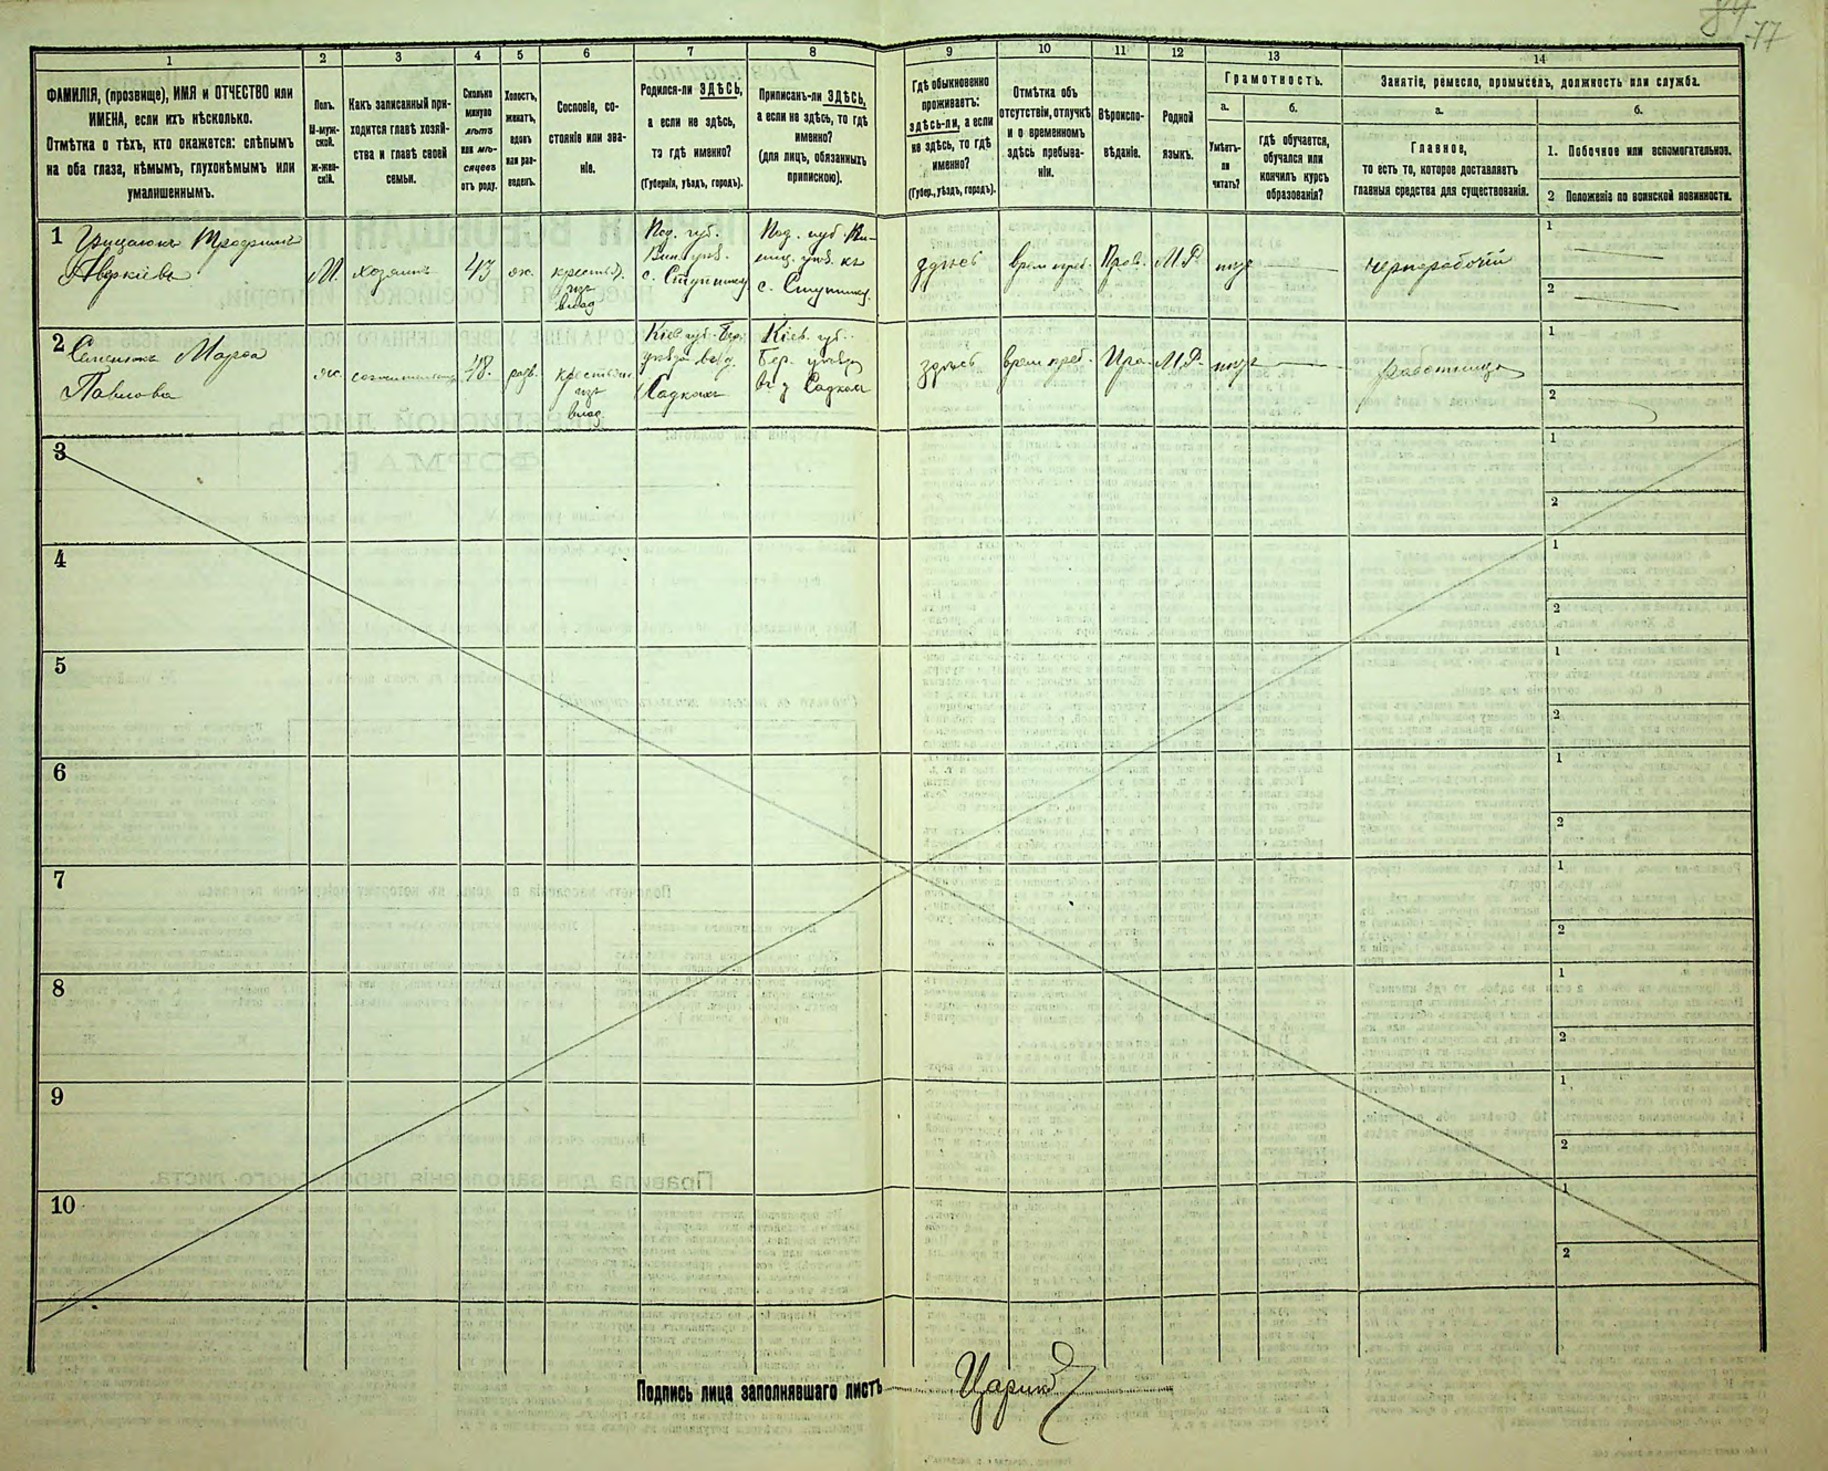 77
1
2
3
4
5
6
7
8
9
10
11
12
13
14
ФАМИЛІЯ, (прозвище), ИМЯ и ОТЧЕСТВО или
ИМЕНА, если ихъ нѣсколько.
Отмѣтка о тѣхъ, кто окажется: слѣпымъ
на оба глаза, нѣмымъ, глухонѣмымъ или
умалишеннымъ.
Полъ.
М-муж-
ской.
Ж-жен-
скій.
Какъ записанный при-
ходится главѣ хозяй-
ства и главѣ своей
семьи.
Сколько
минуло
лѣтъ
или мѣ-
сяцевъ
отъ роду.
Холостъ,
женатъ,
вдовъ
или раз-
веденъ.
Сословіе, со-
стояніе или зва-
ніе.
Родился-ли ЗДѢСЬ,
а если не здѣсь,
то гдѣ именно?
(Губернія, уѣздъ, городъ).
Приписанъ-ли ЗДѢСЬ,
а если не здѣсь, то гдѣ
именно?
(для лицъ, обязанныхъ
припискою).
Гдѣ обыкновенно
проживаетъ:
здѣсь-ли, а если
не здѣсь, то гдѣ
именно?
(Губер., уѣздъ, городъ).
Отмѣтка объ
отсутствіи, отлучкѣ
и о временномъ
здѣсь пребыва-
ніи.
Вѣроиспо-
вѣданіе.
Родной
языкъ.
Грамотность.
а.
б.
Умѣетъ-
ли
читать?
гдѣ обучается,
обучался или
кончилъ курсъ
образованія?
Занятіе, ремесло, промыселъ, должность или служба.
а.
б.
Главное,
то есть то, которое доставляетъ
главныя средства для существованія.
1. Побочное или вспомогательное.
2 Положеніе по воинской повинности.
1
Трофимъ
М.
хозяинъ
43
ж.
крестьян.
изъ
влад
Под. губ.
Вин. уѣз.
Под. губ. Ви-
ниц. уѣз. въ
здѣсь
врем преб.
Прав.
М.Р.
нѣтъ
чернорабочій
1
2
2 Семенюкъ Марѳа
Павлова
ж.
48.
разв.
крестьян.
изъ
влад.
Кіев губ. Бер.
уѣзда въ д.
Садкахъ
Кіев. губ.
Бер. уѣзда
въ д Садкахъ
здѣсь
врем преб.
Пра.
М.Р.
нѣтъ
работница
1
2
3
1
2
4
1
2
5
1
2
6
1
2
7
1
2
8
1
2
9
1
2
10
1
2
Подпись лица заполнявшаго листъ